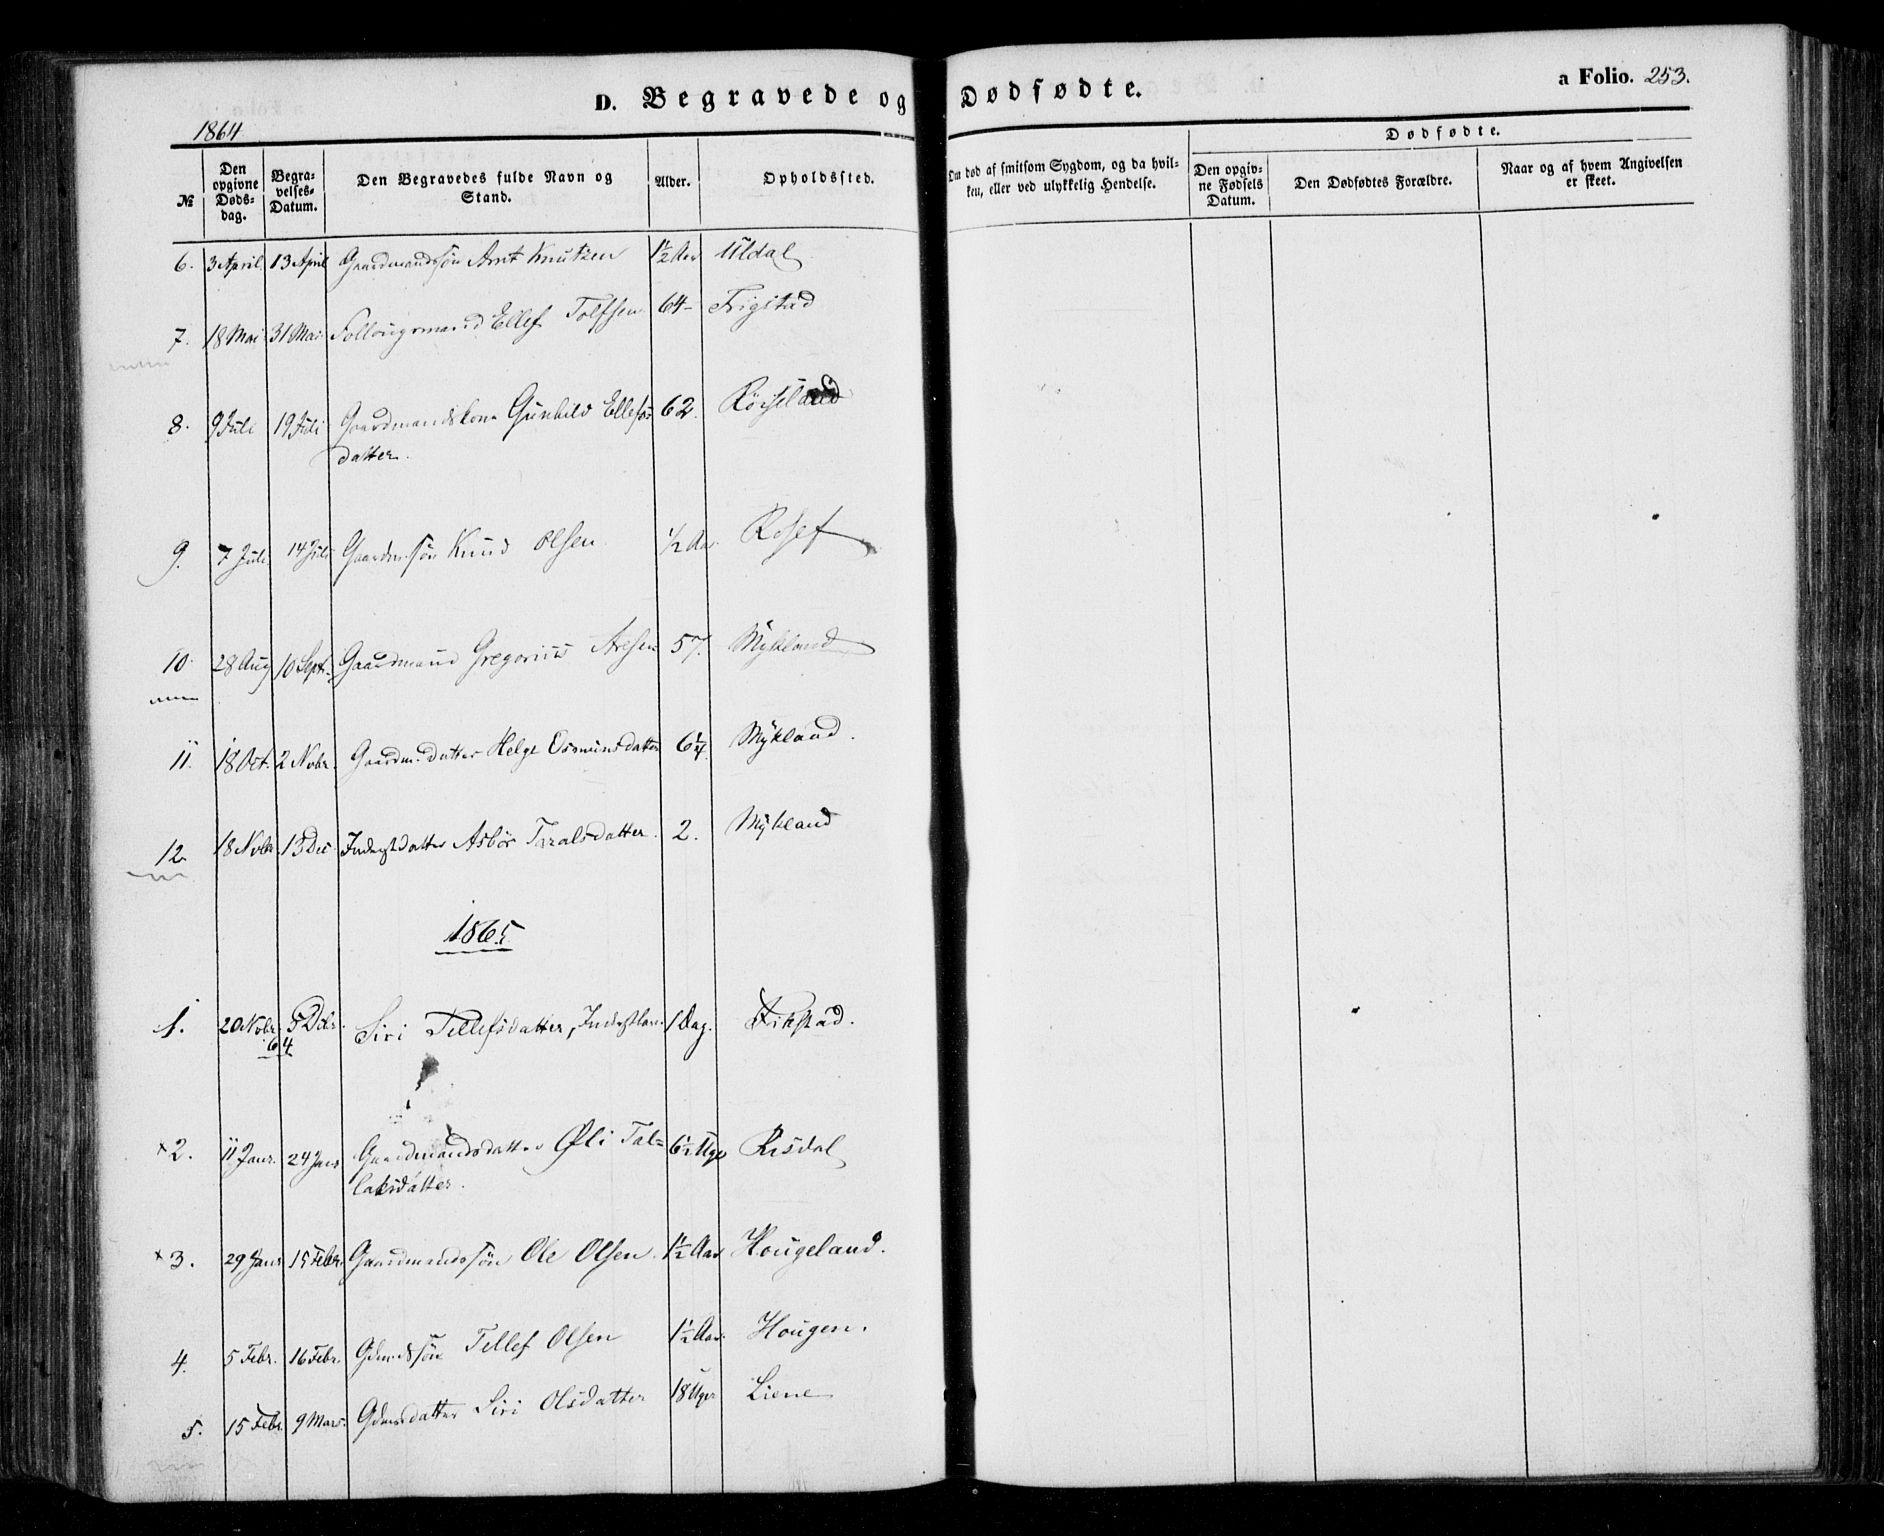 D. Begravede og Dødfødte.
a Folio. 253.
1864
№ Den opgivne Døds-dag. Begra-velses-Datum. Den Begravedes fulde Navn og Stand. Alder. Opholdssted. Om død af smitsom Sygdom, og da hvil-ken, eller ved ulykkelig Hendelse. Dødfødte. Den opgiv-ne Fødsels Datum. Den Dødfødtes Forældre. Naar og af hvem Angivelsen er skeet.
6. 3 April 13 April Gaardmandssøn Arnt Knutzen 1½ Aar Uldal
7. 18 Mai 31 Mai Follougsmand Ellef Tolfsen 64 - Frigstad
8. 9 Juli 19 Juli Gaardmandskone Gunhild Ellefs=
datter. 62. Røiseland
9. 7 Juli 14 Juli Gaardm. søn Knud Olsen ½ Aar Rosef
10. 28 Aug 10 Sept. Gaardmand Gregorius Aresen 57. Mykland
11. 18 Oct. 2 Novbr. Gaardm. datter Helge Osmunsdatter 6¼ Mykland.
12. 18 Novbr 13 Dec Inderstdatter Asbør Taralsdatter. 2. Mykland
1865
1. 20 Novbr. 5 Dcbr. Siri Tellefsdatter, 1 Dag. Fikstad.
64
× 2. 11 Janr. 24 Janr Gaardmandsdatter Øli Tal=
laksdatter. 6½ Uge Risdal
× 3. 29 Janr 15 Febr. Gaardmandssøn Ole Olsen. 1½ Aar Hougeland.
4. 5 Febr. 16 Febr. Gdmdssøn Tellef Olsen 1½ Aar. Hougen.
5. 15 Febr. 9 Mars. Gdmsdatter Siri Olsdatter 18 Uger Liene